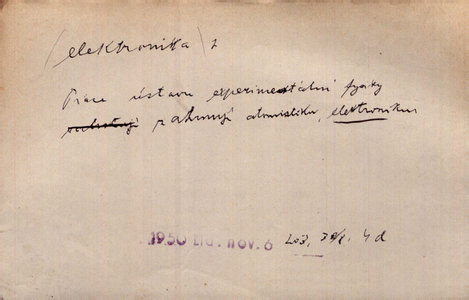 (elektronika) 2
Práce ústavu experimentální fysiky
zahrnují atomistiku, elektroniku
1950 Lid. nov. 6 4 d